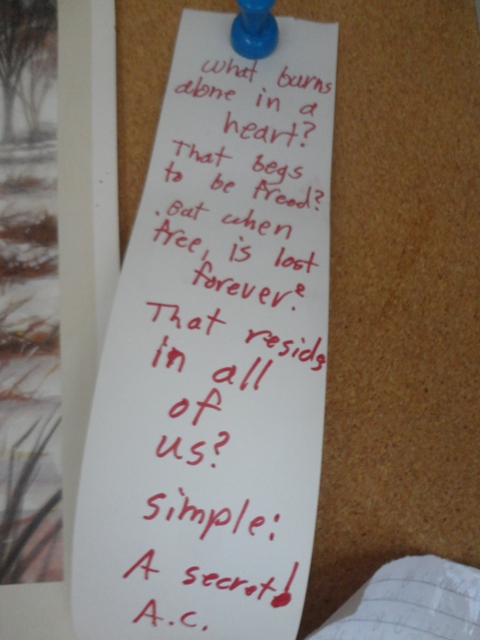 what burns
alone in a
heart?
That begs
to be freed?
But when
free, is lost
forever?
That resids
in all
of
us?
simple:
A secret!
A.C.